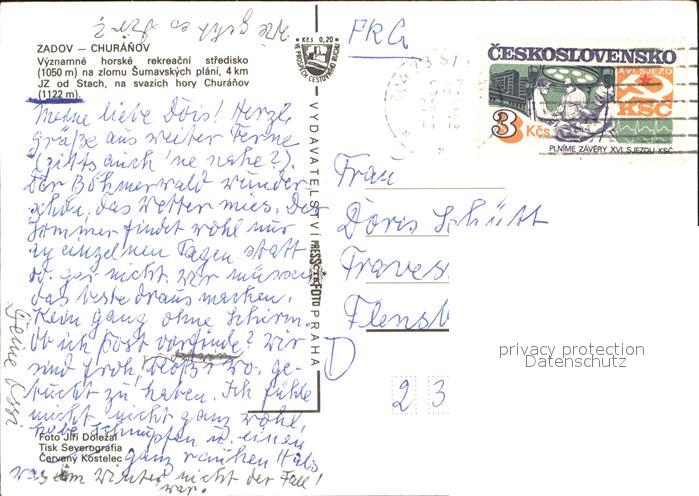 Wie geht es Dir?
ZADOV – CHURÁŇOV
Významné horské rekreační středisko
(1050 m) na zlomu Šumavských plání, 4 km
JZ od Stach, na svazích hory Churáňov
(1122 m).
Meine liebe Döris! Herzl.
grüße aus weiter Ferne
(gilts auch 'ne nahe?).
Der Böhmerwald wunder
schön, das Wetter mies. Der
Sommer findet wohl nur
an einzelnen Tagen statt
od. gar nicht. Wir müssen
das beste draus machen.
Kein gang ohne Schirm.
Ob ich Post vorfinde? Wir
sind froh, bloß 2 Wo. ge-
bucht zu haben. Ich fühle
mich nicht ganz wohl,
habe Schnupfen u. einen
ganz rauhen Hals!
was im Winter nicht der Fall
war.
Deine
Foto Jiří Doležal
Tisk Severografia
Červený Kostelec
Kčs 0,20
VE PROSPĚCH CESTOVNÍHO RUCHU
VYDAVATELSTVÍ PRESSFOTO PRAHA
FRG
ČESKOSLOVENSKO
XVI. SJEZD
KSČ
3 Kčs
PLNÍME ZÁVĚRY XVI. SJEZDU KSČ
Frau
Döris Schütt
Traves
Flensb
D
2 3
privacy protection
Datenschutz